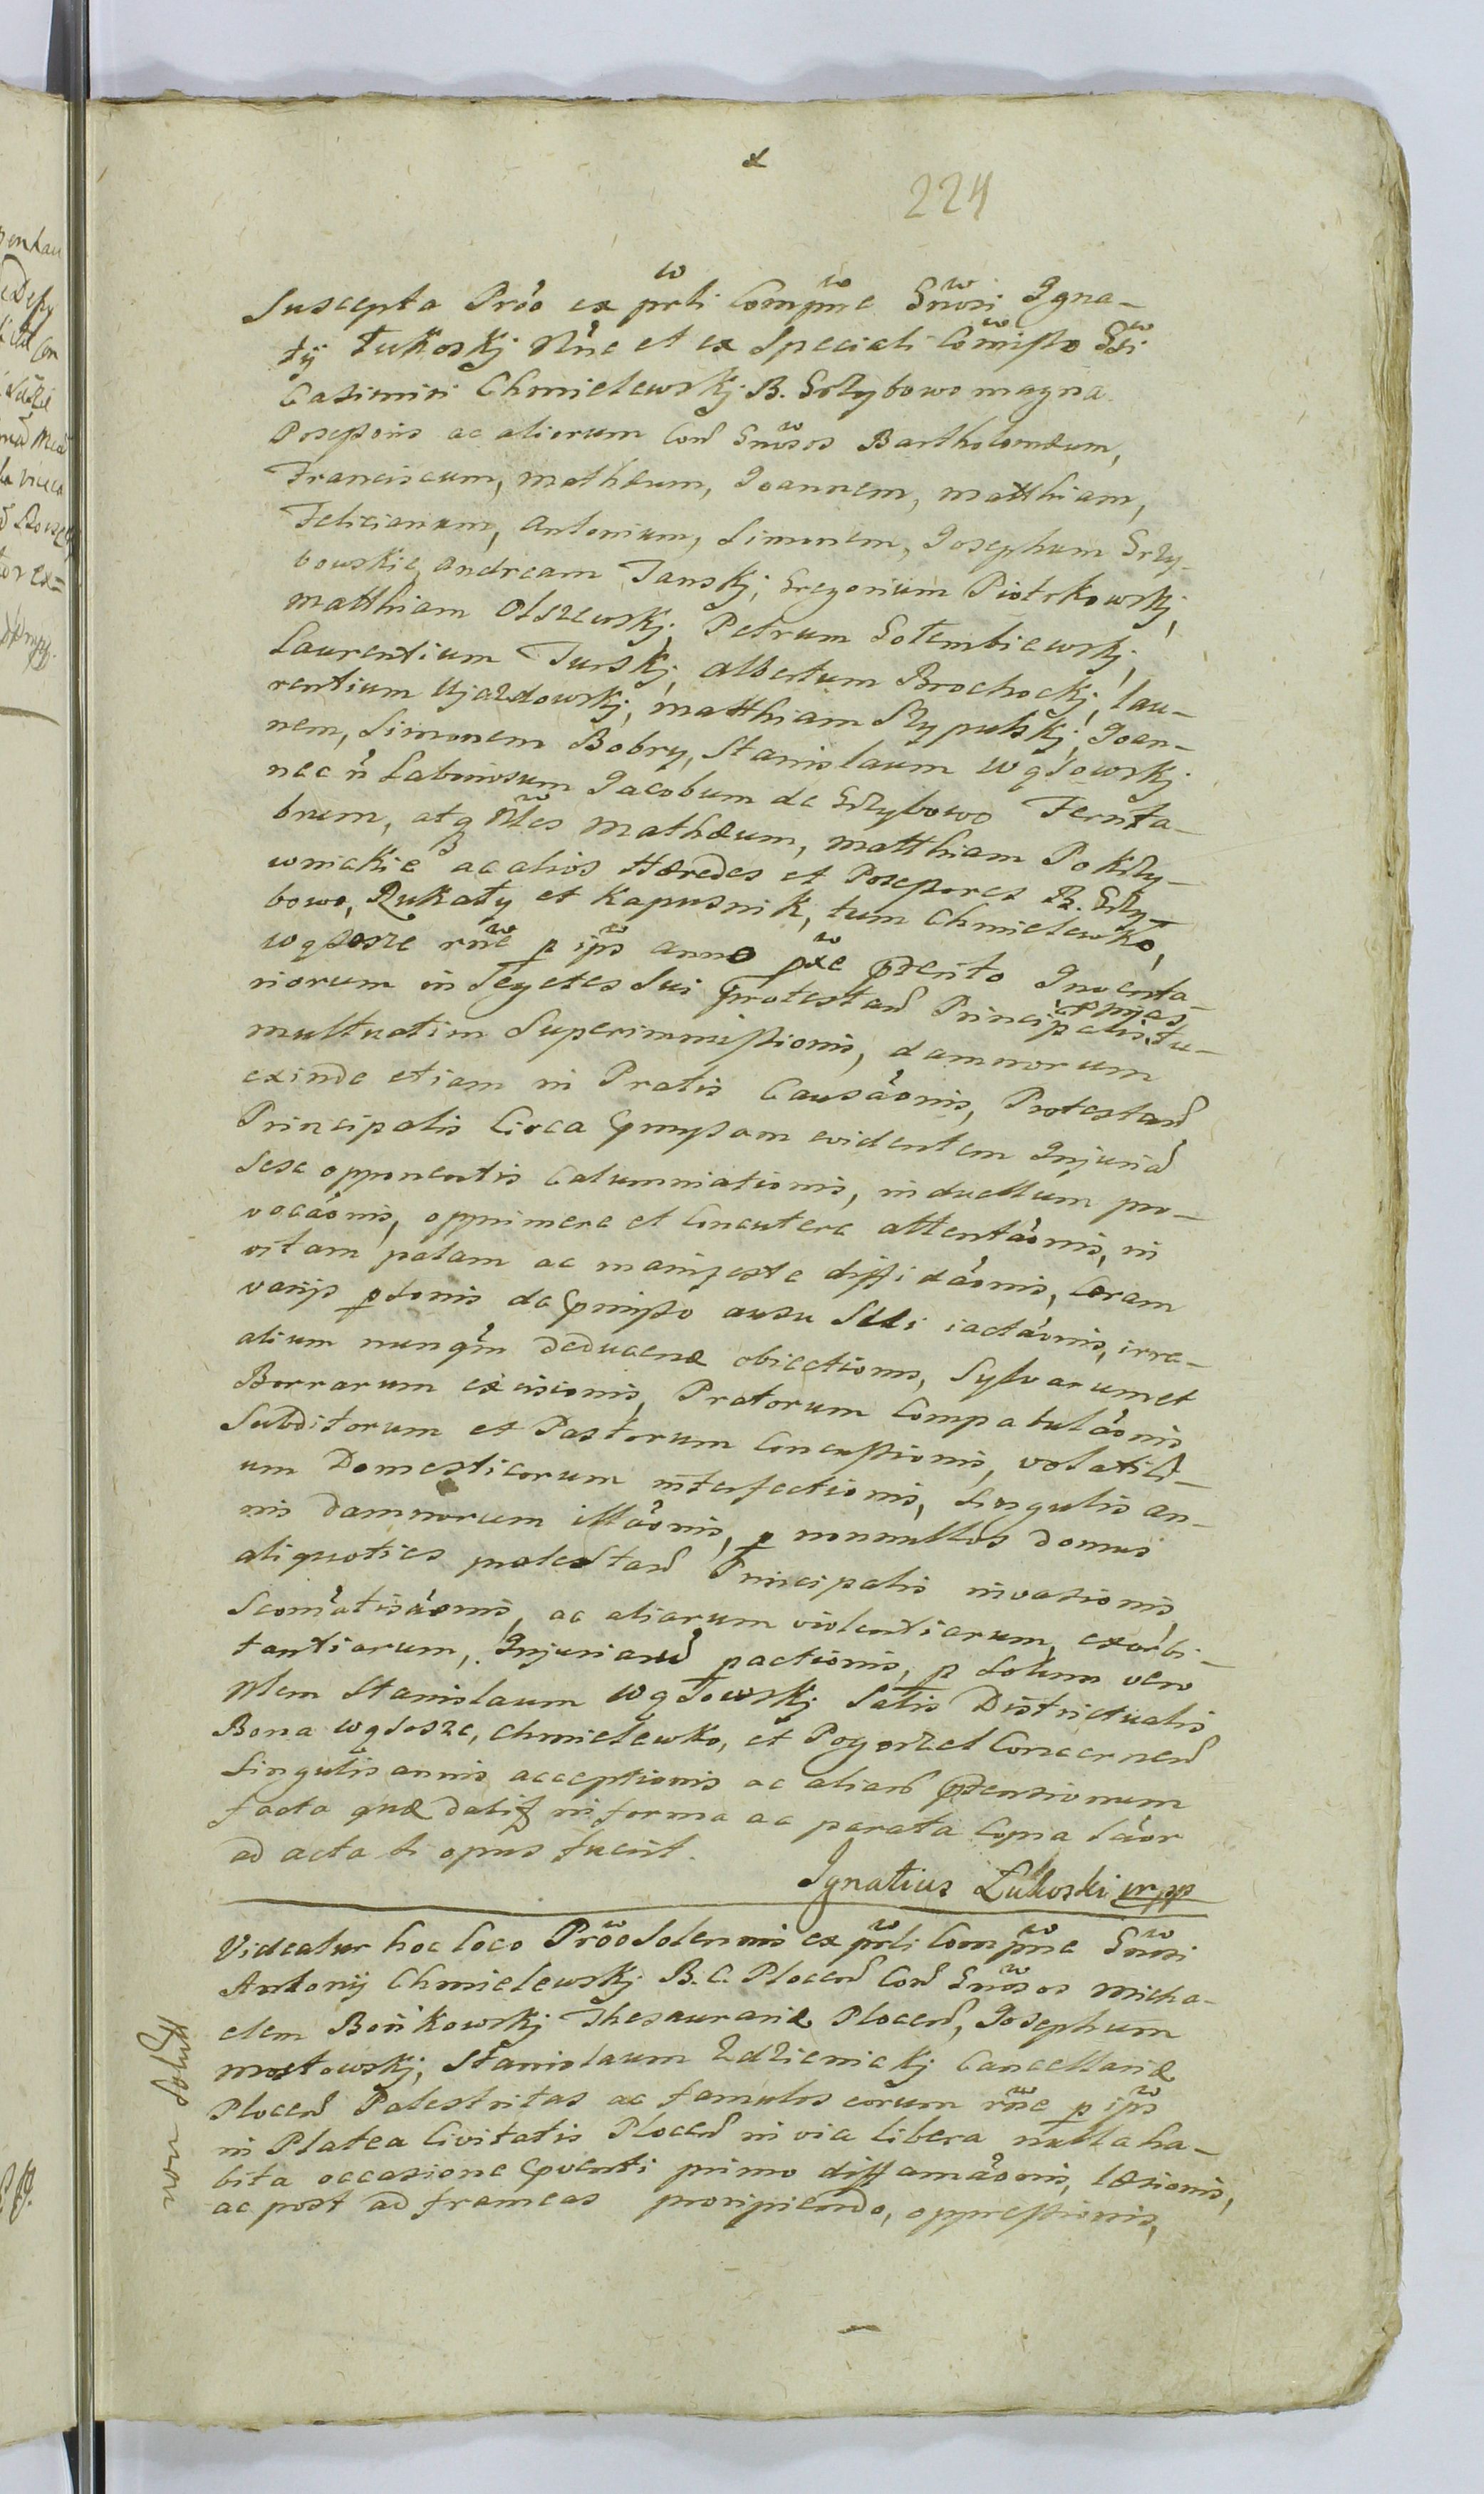 224
Suscepta Prõo ex prli Compne Gnosi Igna-
tij Łukoskj Nne et ex Speciali Comisso Gsi
Casimiri Chmielewskj B. Grzybowo magna
Possessoris ac aliorum Cont Gnosos Bartholomæum,
Franciscum, Mathæum, Joannem, Matthiam,
Felicianum, Antonium, Simonem, Josephum Grzy-
bowskie, Andream Janskj, Gregorium Piotrkowskj,
Matthiam Olszewskj, Petrum Gołembiewskj,
Laurentium Turskj, Albertum Brochockj, Lau-
rentium Ujazdowskj, Matthiam Słypulskj, Joan-
nem, Simonem Bobry, Stanislaum Wąsowskj
nec n Laboriosum Jacobum de Grzybowo
brum, atq Nles Mathæum, Matthiam Pokrzy-
wnickie ac alios Hæredes et Possessores B. Grzy-
bowo, Rukały et Kapusnik, tum Chmielewko,
Wąsosze rne p ips anno pxe Inventa-
riorum in Segetes Sui Protestan Principalis tu-
multuatim Superimmissionis, damnorum
exinde etiam in Pratis Causãonis, Protestan
Principalis Circa pmissam evidentem Injuriã
Sese opponentis Calumniationis, in duellum pro-
vocãonis, opprimere et Concutere attentãonis, in
vitam palam ac manifeste diffidãonis, Coram
varijs psonis de pmisso ausu Sui iactãonis, irre-
alium nunqm Deducenæ obiectionis, Sylvarum et
Borrarum excisionis, Pratorum Compabulãonis
Subditorum et Pastorum Concussionis, volatili-
um Domesticorum interfectionis, Singulis an-
nis Damnorum illãonis, p nonnullos domus
aliquoties protestan Principalis invasionis,
Scomatisãonis, ac aliarum violentiarum, exorbi-
tantiarum, Injuriarũ pactionis, p Solum vero
Nlem Stanislaum Wąsowskj Salis Districtualis
Bona Wąsosze, Chmielewko, et Pogorzel Concernen
Singulis annis acceptionis ac aliarũ ptensionum
facta quæ in forma ac parata Copia
ad acta si opus fuerit.
Ignatius Łukoski mpp
Videatur hoc loco Prõo Solennis ex prli Compne Gnosi
Antonij Chmielewskj B. C. Plocen Con Gnosos Micha-
elem Bońkowskj Thesaurariæ Plocen, Josephum
Mostowskj, Stanislaum Zdzienickj Cancellariæ
Plocen Palestritas ac famulos eorum rne p ips
in Platea Civitatis Plocen in via libera nulla ha-
bita occasione pventi primo diffamãonis, læsionis,
ac post ad frameas proripiendo, oppressionis,